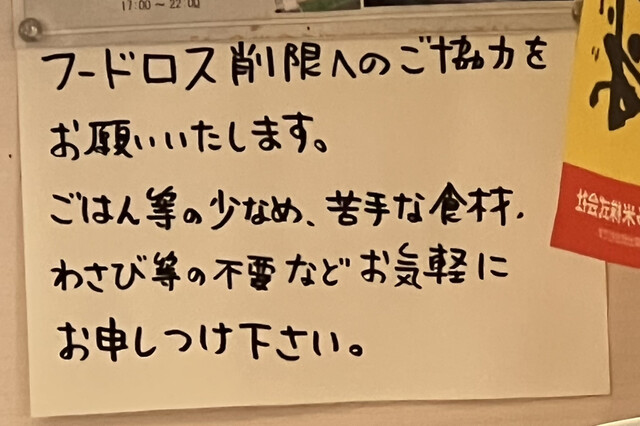 17:00 ~ 22:00
フードロス削限へのご協力を
お願いいたします。
ごはん等の少なめ、苦手な食材、
わさび等の不要などお気軽に
お申しつけ下さい。